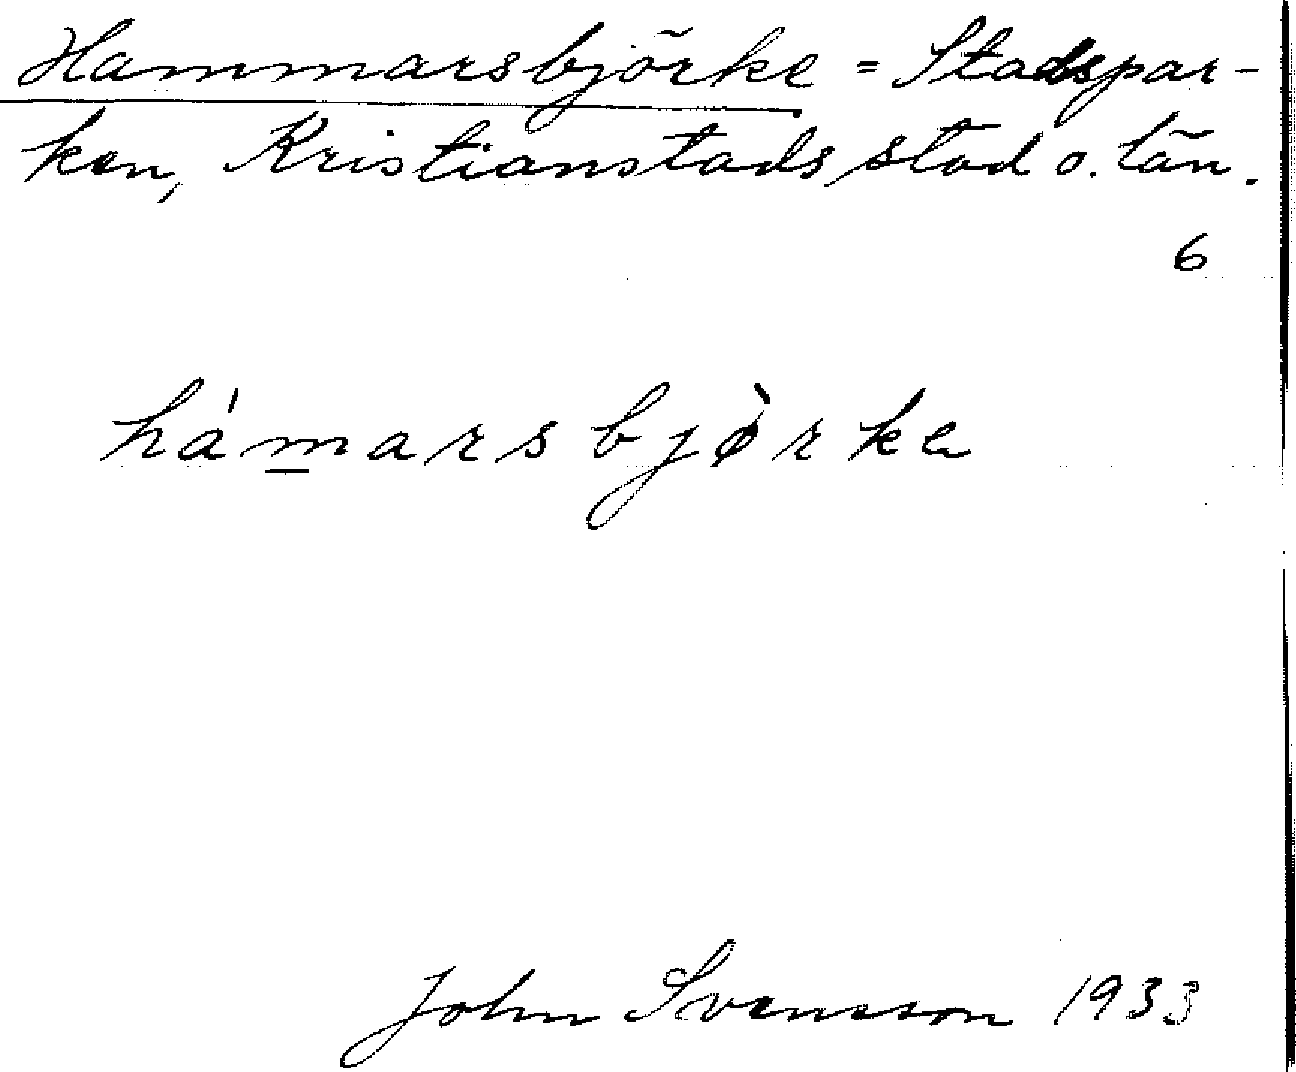 Hammarsbjörke = Stadspar-
ken, Kristianstads stad o. län.
6
hámarsbjørke
John Svensson 1933